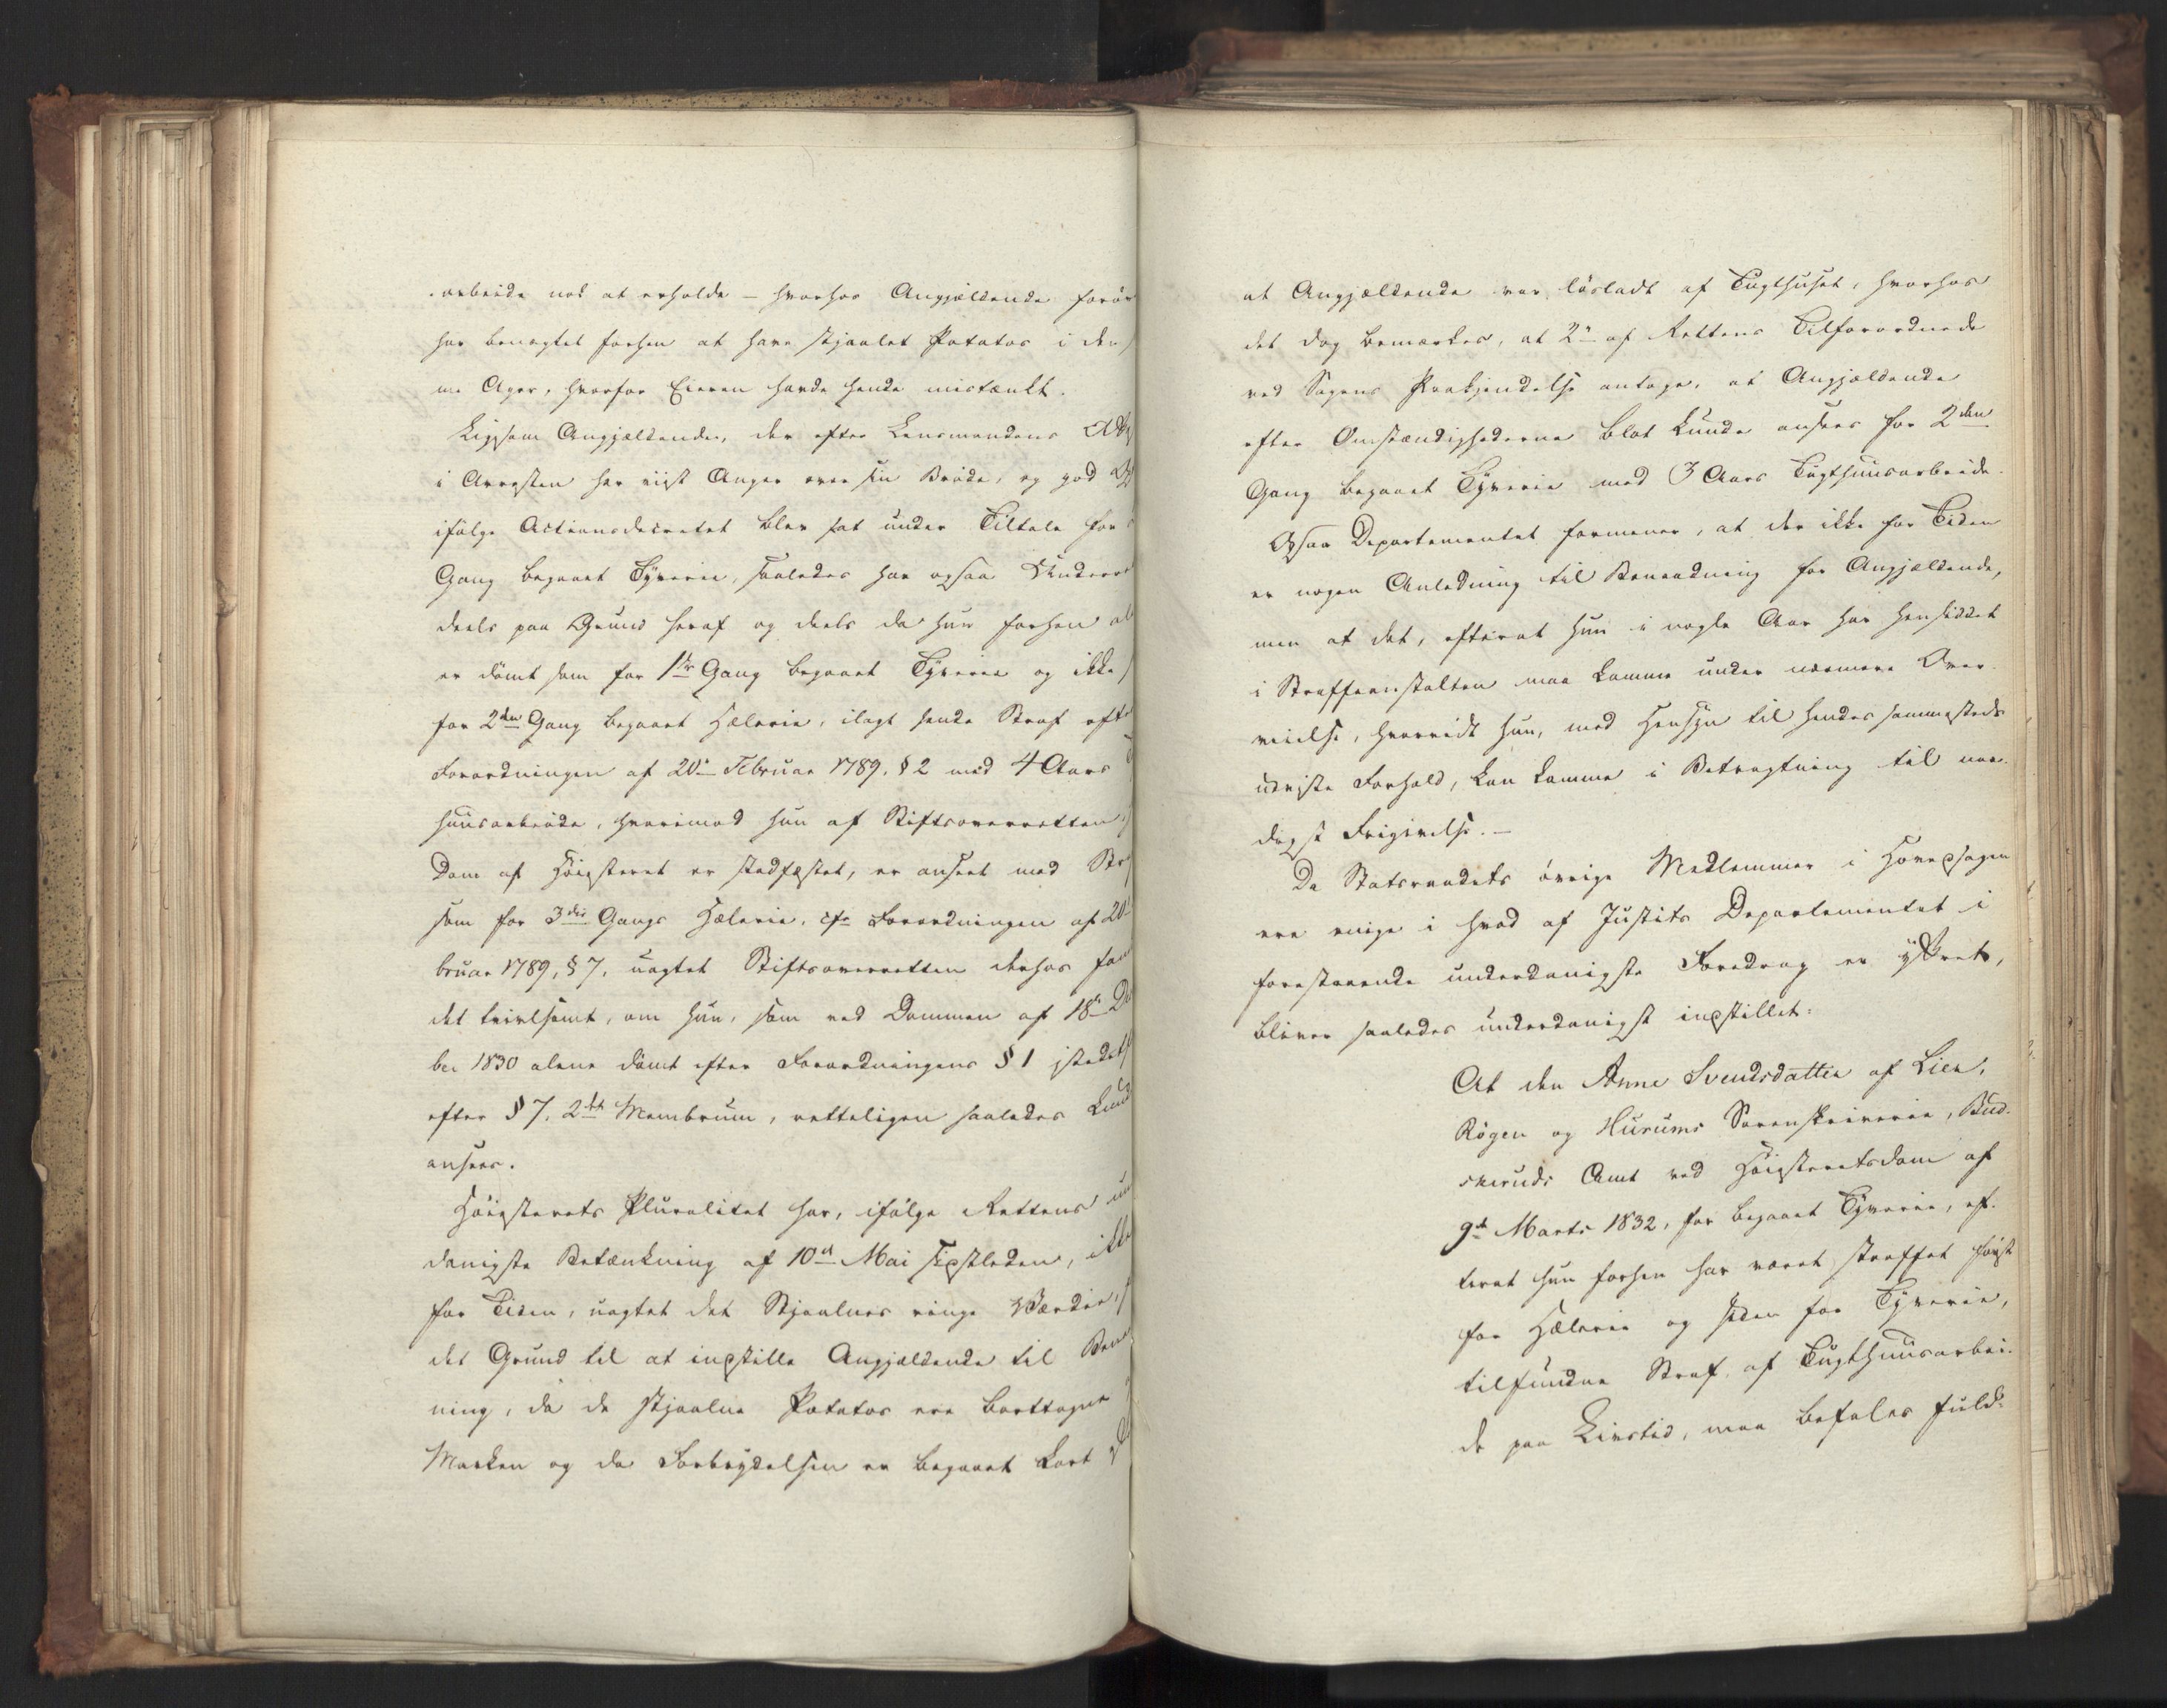 arbeide nok at erholde – hvorhos Angjældende forøv
har benegtet forhen at have stjaalet Potatos i den
me Ager, hvorfor Eieren havde hende mistænkt.
Ligesom Angjældende, der efter Lensmandens
i Arresten har viist Anger over sin Brøde, og god
ifølge Actionsdecretet blev sat under Tiltale for
Gang begaaet Tyverie, saaledes har ogsaa Underre
deels paa Grund heraf og deels da hun forhen al
er dømt som for 1ste Gang begaaet Tyverie og ikke
for 2den Gang begaaet Hælerie, ilagt hende Straf efter
Forordningen af 20de Februar 1789. § 2 med 4 Aars
huusarbeide, hvorimod hun af Stiftsoverretten
Dom af Høiesteret er stadfæstet, er anseet med Str
som for 3die Gangs Hælerie, cfr Forordningen af 20
bruar 1789, § 7, uagtet Stiftsoverretten derhos fan
det tvivlsomt, om hun, som ved Dommen af 18de De
ber 1830 alene dømt efter Forordningens § 1 istedetf
efter § 7, 2det Membrum, retteligen saaledes kund
ansees.
Høiesterets Pluralitet har, ifølge Rettens un
danigste Betænkning af 10de Mai sidstleden, ikke
for Tiden, uagtet det Stjaalnes ringe Værdie,
det Grund til at indstille Angjældende til Benaa
ning, da de stjaalne Potatos ere borttagne
Marken og da Forbrydelsen er begaaet kort
at Angjældende var løsladt af Tugthuset, hvorhos
det dog bemærkes, at 2de af Rettens Tilforordnede
ved Sagens Paakjendelse antoge, at Angjældende
efter Omstændighederne blot kunde ansees for 2den
Gang begaaet Tyverie med 3 Aars Tugthuusarbeide.
Ogsaa Departementet formener, at der ikke for Tiden
er nogen Anledning til Benaadning for Angjældende,
men at det, efterat hun i nogle Aar har hensiddet
i Straffeanstalten maa komme under nærmere Over-
veielse, hvorvidt hun, med Hensyn til hendes sammesteds
udviste Forhold, kan komme i Betragtning til naa-
digst Frigivelse. –
Da Statsraadets øvrige Medlemmer i Hovedsagen
ere enige i hvad af Justits Departementet i
forestaaende underdanigste Foredrag er yttret,
bliver saaledes underdanigst indstillet:
At den Anne Svendsdatter af Lier,
Røgen og Hurums Sorenskriverie, Bus-
skeruds Amt ved Høiesteretsdom af
9de Marts 1832, for begaaet Tyverie, ef-
terat hun forhen har været straffet først
for Hælerie og siden for Tyverie,
tilfundne Straf af Tugthuusarbei-
de paa Livstid, maa befales fuld-